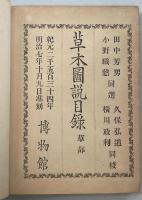 田中芳男 久保弘道
同選 同校
小野職愨 横川政利
草木圖説目録 草部
紀元二千五百三十四年
明治七年十月九日准刻
博物館